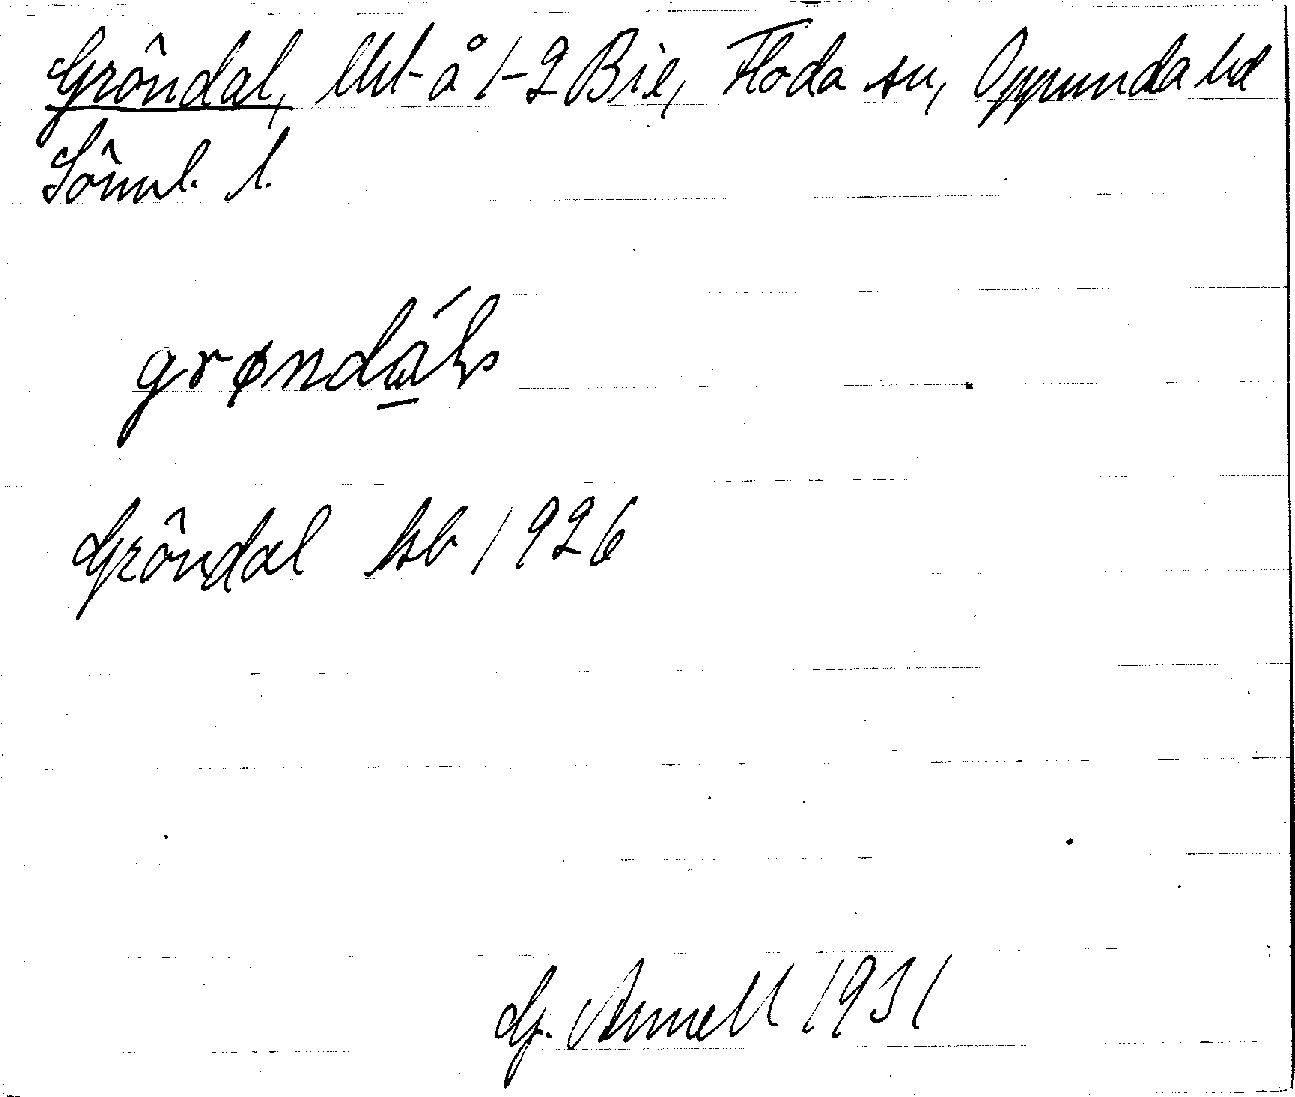 Gröndal, Utj å 1-2 Bie, Floda sn, Oppunda hd
Söml. l.
grøndáls
Gröndal kb 1926
G. Annell 1931